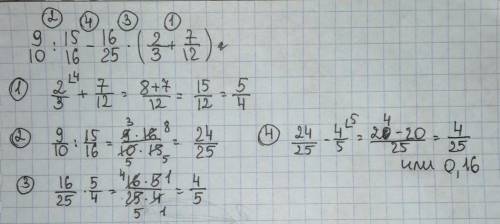 ② ④ ③ ①
9/10 : 15/16 - 16/25 · (2/3 + 7/12) =
① 2/3 ⌊4 + 7/12 = 8+7/12 = 15/12 = 5/4
② 9/10 : 15/16 = 3 9·16 8/5 10·15 5 = 24/25
③ 16/25 · 5/4 = 4 16·5 1/5 25·4 1 = 4/5
④ 24/25 - 4/5 ⌊5 = 24-20/25 = 4/25
или 0,16